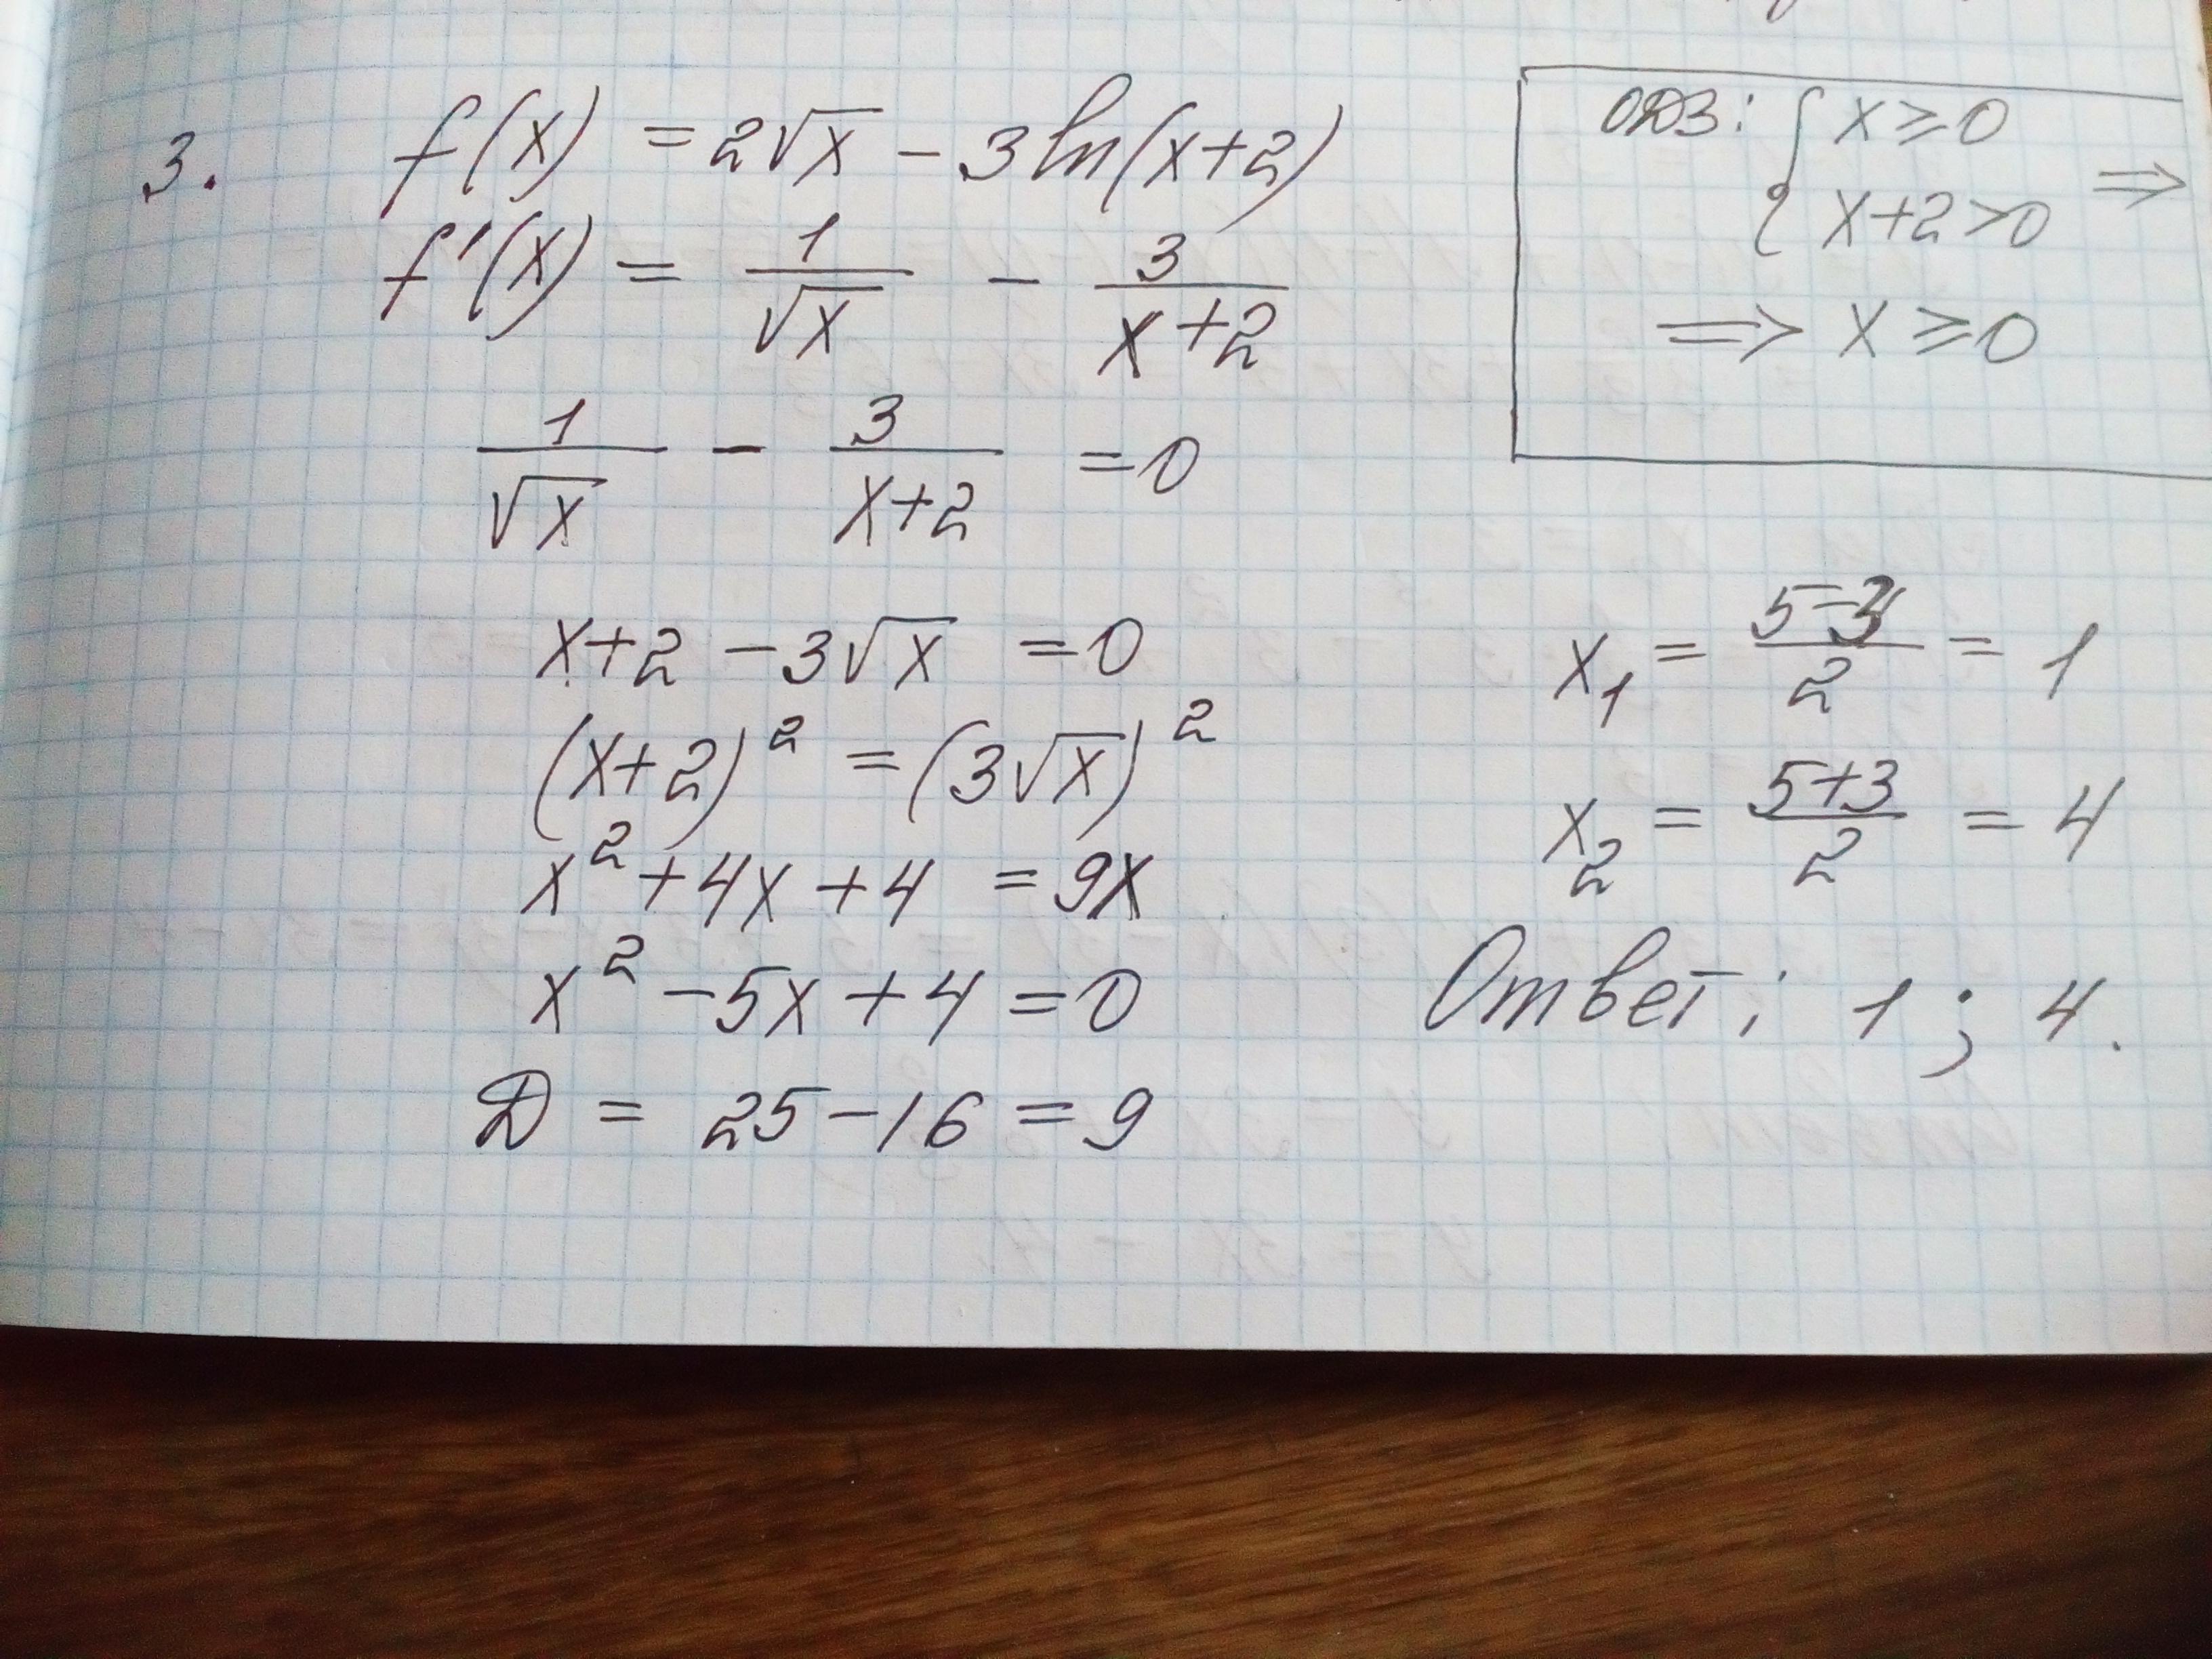 3. f(x) = 2√x - 3ln(x+2)
f'(x) = 1/√x - 3/(x+2)
1/√x - 3/(x+2) = 0
x+2 - 3√x = 0
(x+2)² = (3√x)²
x² + 4x + 4 = 9x
x² - 5x + 4 = 0
D = 25 - 16 = 9
ОДЗ: { x ≥ 0
x+2 > 0 ⇒
⇒ x ≥ 0
x₁ = (5-3)/2 = 1
x₂ = (5+3)/2 = 4
Ответ: 1; 4.